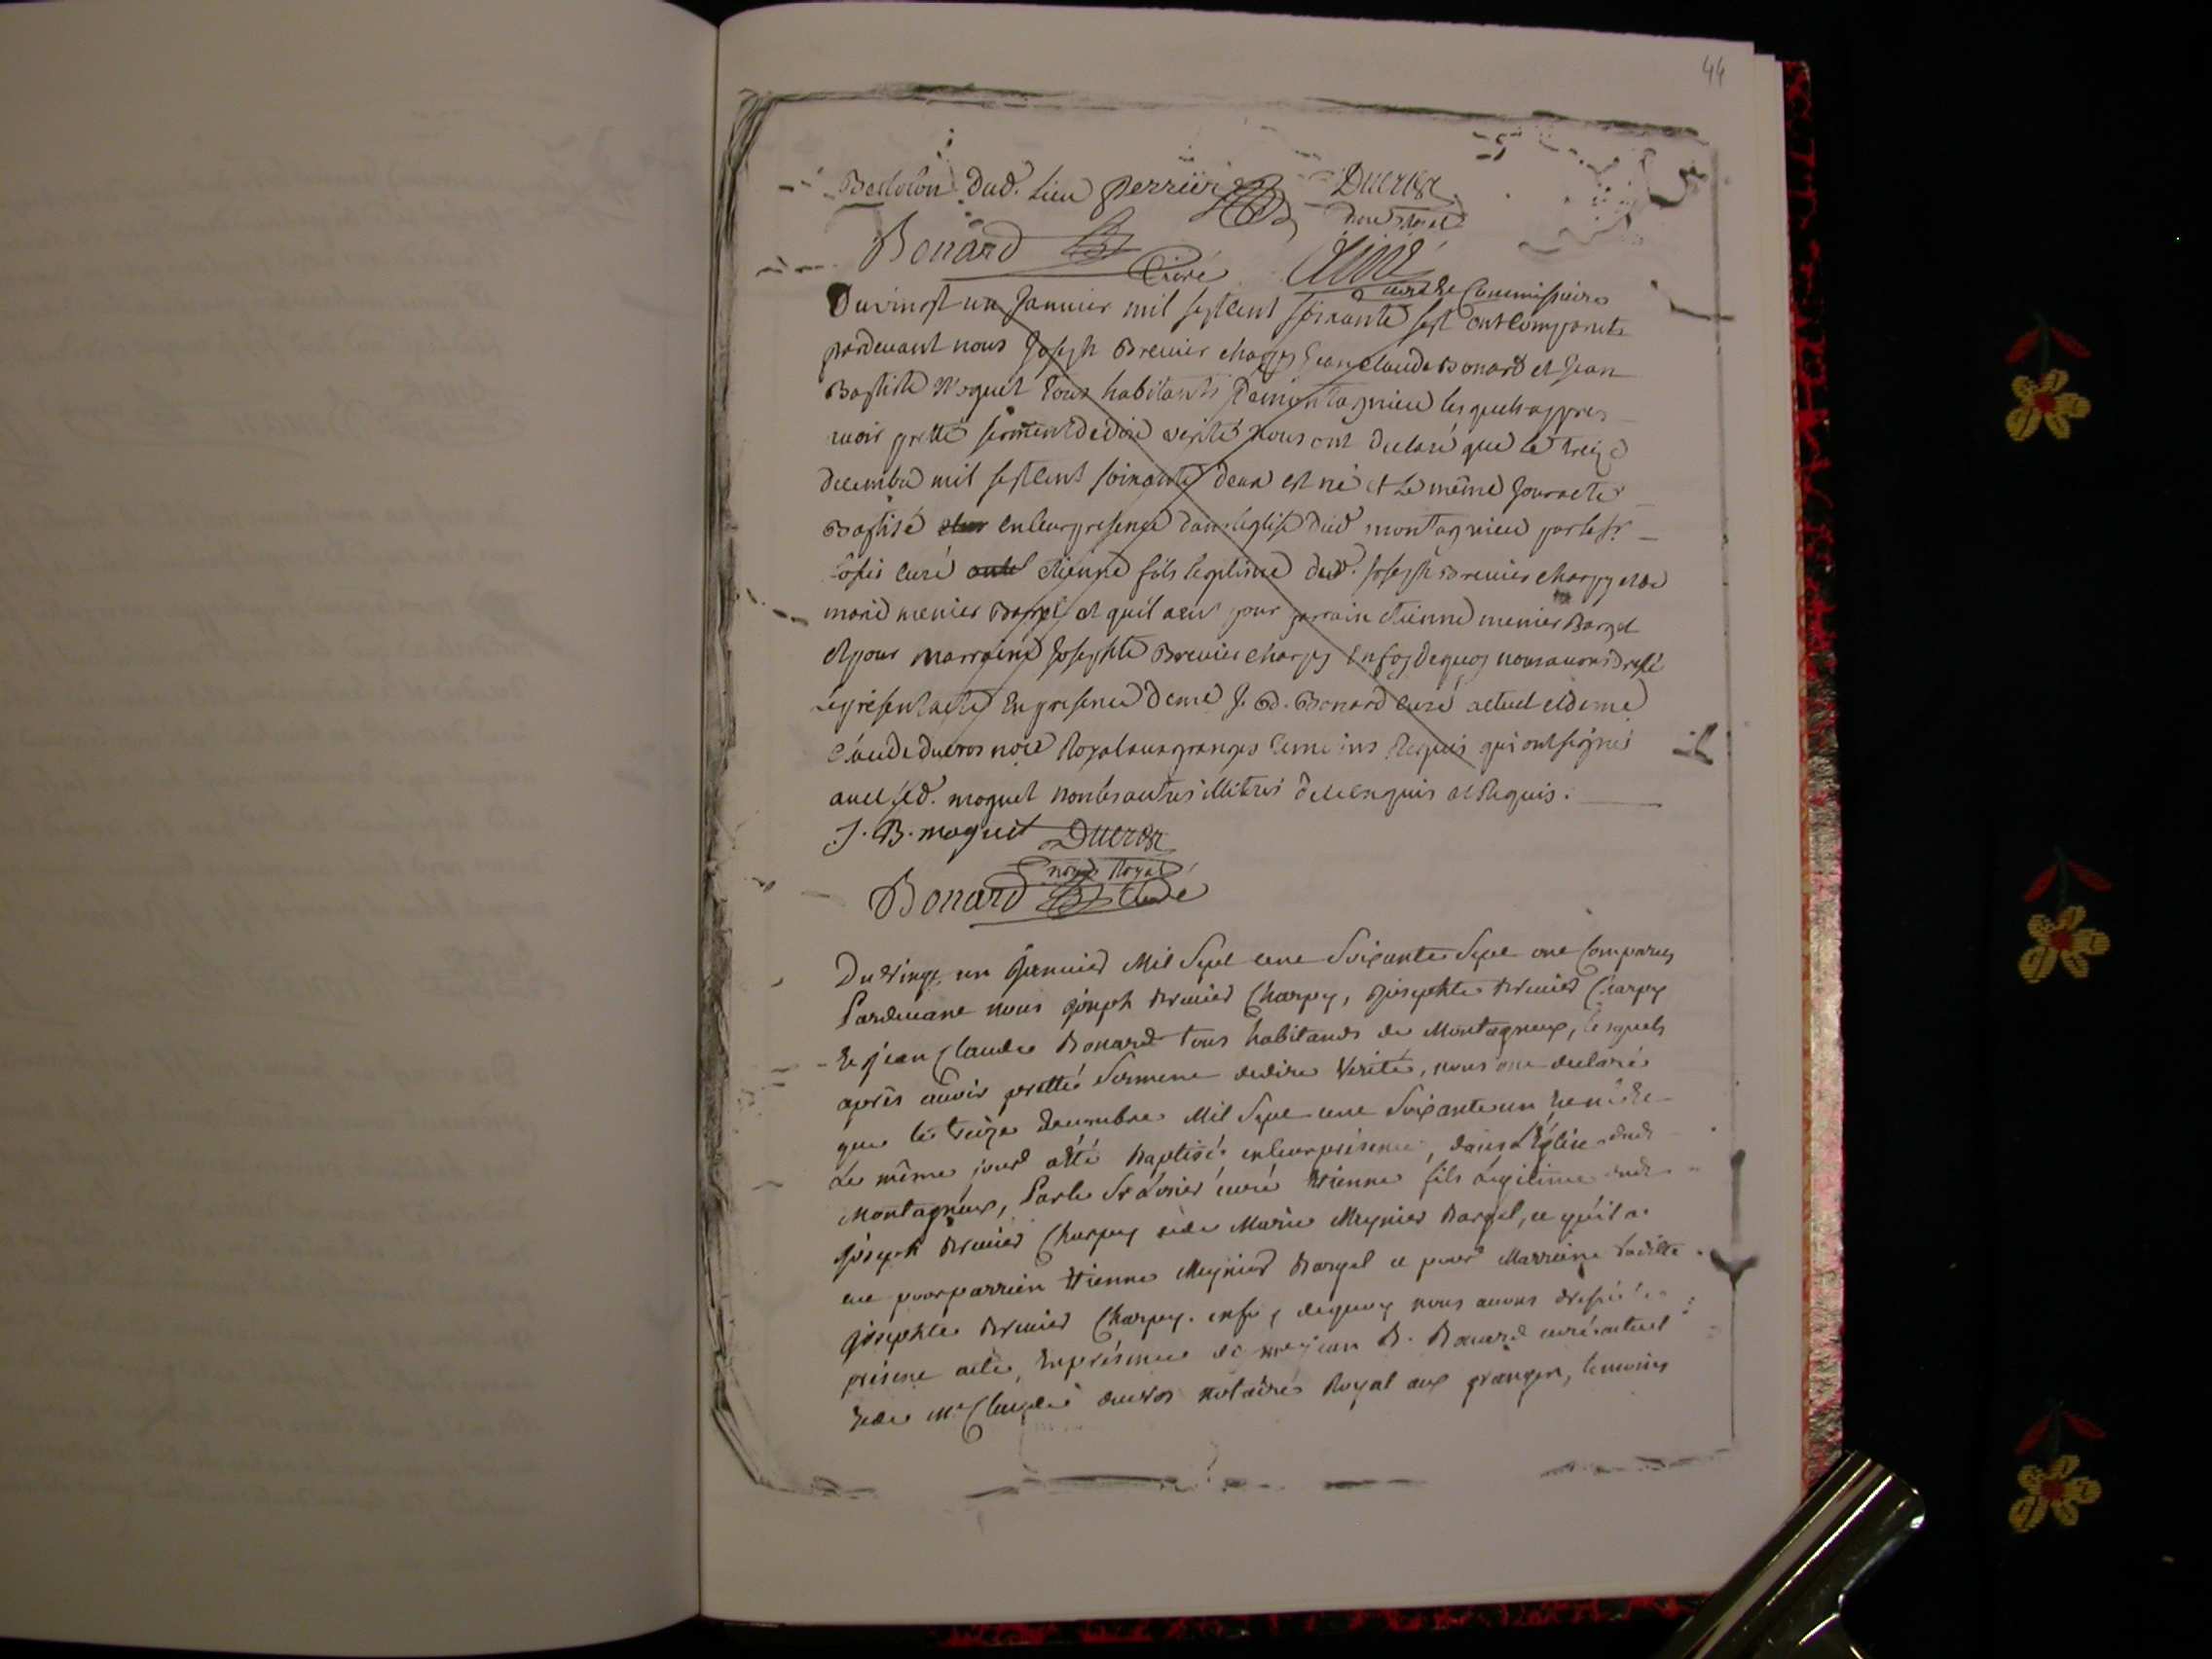 44
dud. lieu perrier Ducros
Bonard Curé
Curé Commissaire
Du vingt un Janvier mil sept cent soixante sept ont comparuts
pardevant nous Joseph Brevier charpy Jean claude Bonard et Jean
Baptiste Moguet tous habitants demontagnieu lesquels appres
avoir pretté serment dédire verité nous ont declaré que le treize
decembre mil sept cent soixante deux est né et le même Jour a eté
Baptisé en leur presence dans leglise dud montagnieu par le sr
curé etienne fils legitime dud. Joseph Brevier charpy et de
marie menier Bargel et quil a eut pour parrain etienne menier Bargel
et pour marraine Josephte Brevier charpy en foy de quoy nous avons dressé
le present acte en presence de me J. B. Bonard curé actuel et de me
Claude ducros nore Royal aux granges temoins Requis qui ont signés
avec led. moguet non les autres illitrés de ce enquis et Requis.
J. B. moguet Ducros
nore Royal
Bonard Curé
Du vingt un Janvier Mil Sept cent Soixante Sept ont Comparus
Pardevant nous Joseph Brevier Charpy, Josephte Brevier Charpy
Et Jean Claude Bonard tous habitants de Montagneux, lesquels
après avoir pretté Serment dedire Verité, nous ont declaré
que le treize Decembre Mil Sept cent Soixante un Est né Et
Le même jour a été Baptisé en leur présence, dans L'Église dud
Montagneux, Par le Sr curé Etienne fils Légitime dud
Joseph Brevier Charpy et de Marie Meynier Bargel, et qu'il a
eut pour parrien Etienne Meynier Bargel et pour Marreine Ladite
Josephte Brevier Charpy. en foy dequoy nous avons dressé le
présent acte, En présence de me jean B. Bonard curé actuel
Et de Me Claude ducros notaire Royal aux granges, temoins